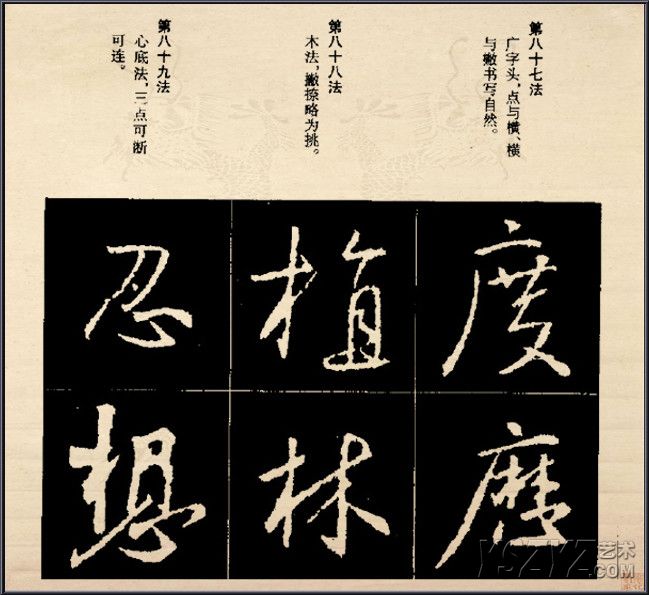 第八十七法
广字头，点与横、横
与撇书写自然。
第八十八法
木法，撇捺略为挑。
第八十九法
心底法，三点可断
可连。
度
植
林
忍
想
YSZYZ艺术
.COM